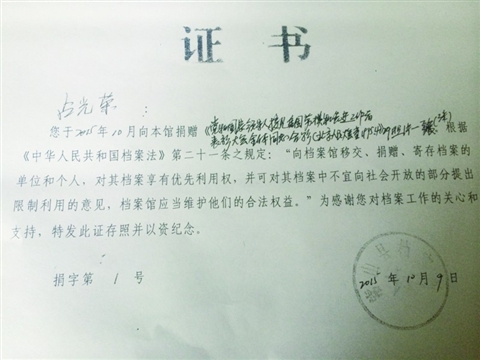 证书
占光荣：
您于2015年10月向本馆捐赠《党和国家领导人接见全国劳模和先进工作者
表彰大会全体同志合影 照片一张 。根据
《中华人民共和国档案法》第二十一条之规定：“向档案馆移交、捐赠、寄存档案的
单位和个人，对其档案享有优先利用权，并可对其档案中不宜向社会开放的部分提出
限制利用的意见，档案馆应当维护他们的合法权益。”为感谢您对档案工作的关心和
支持，特发此证存照并以资纪念。
捐字第 1 号
2015年10月9日